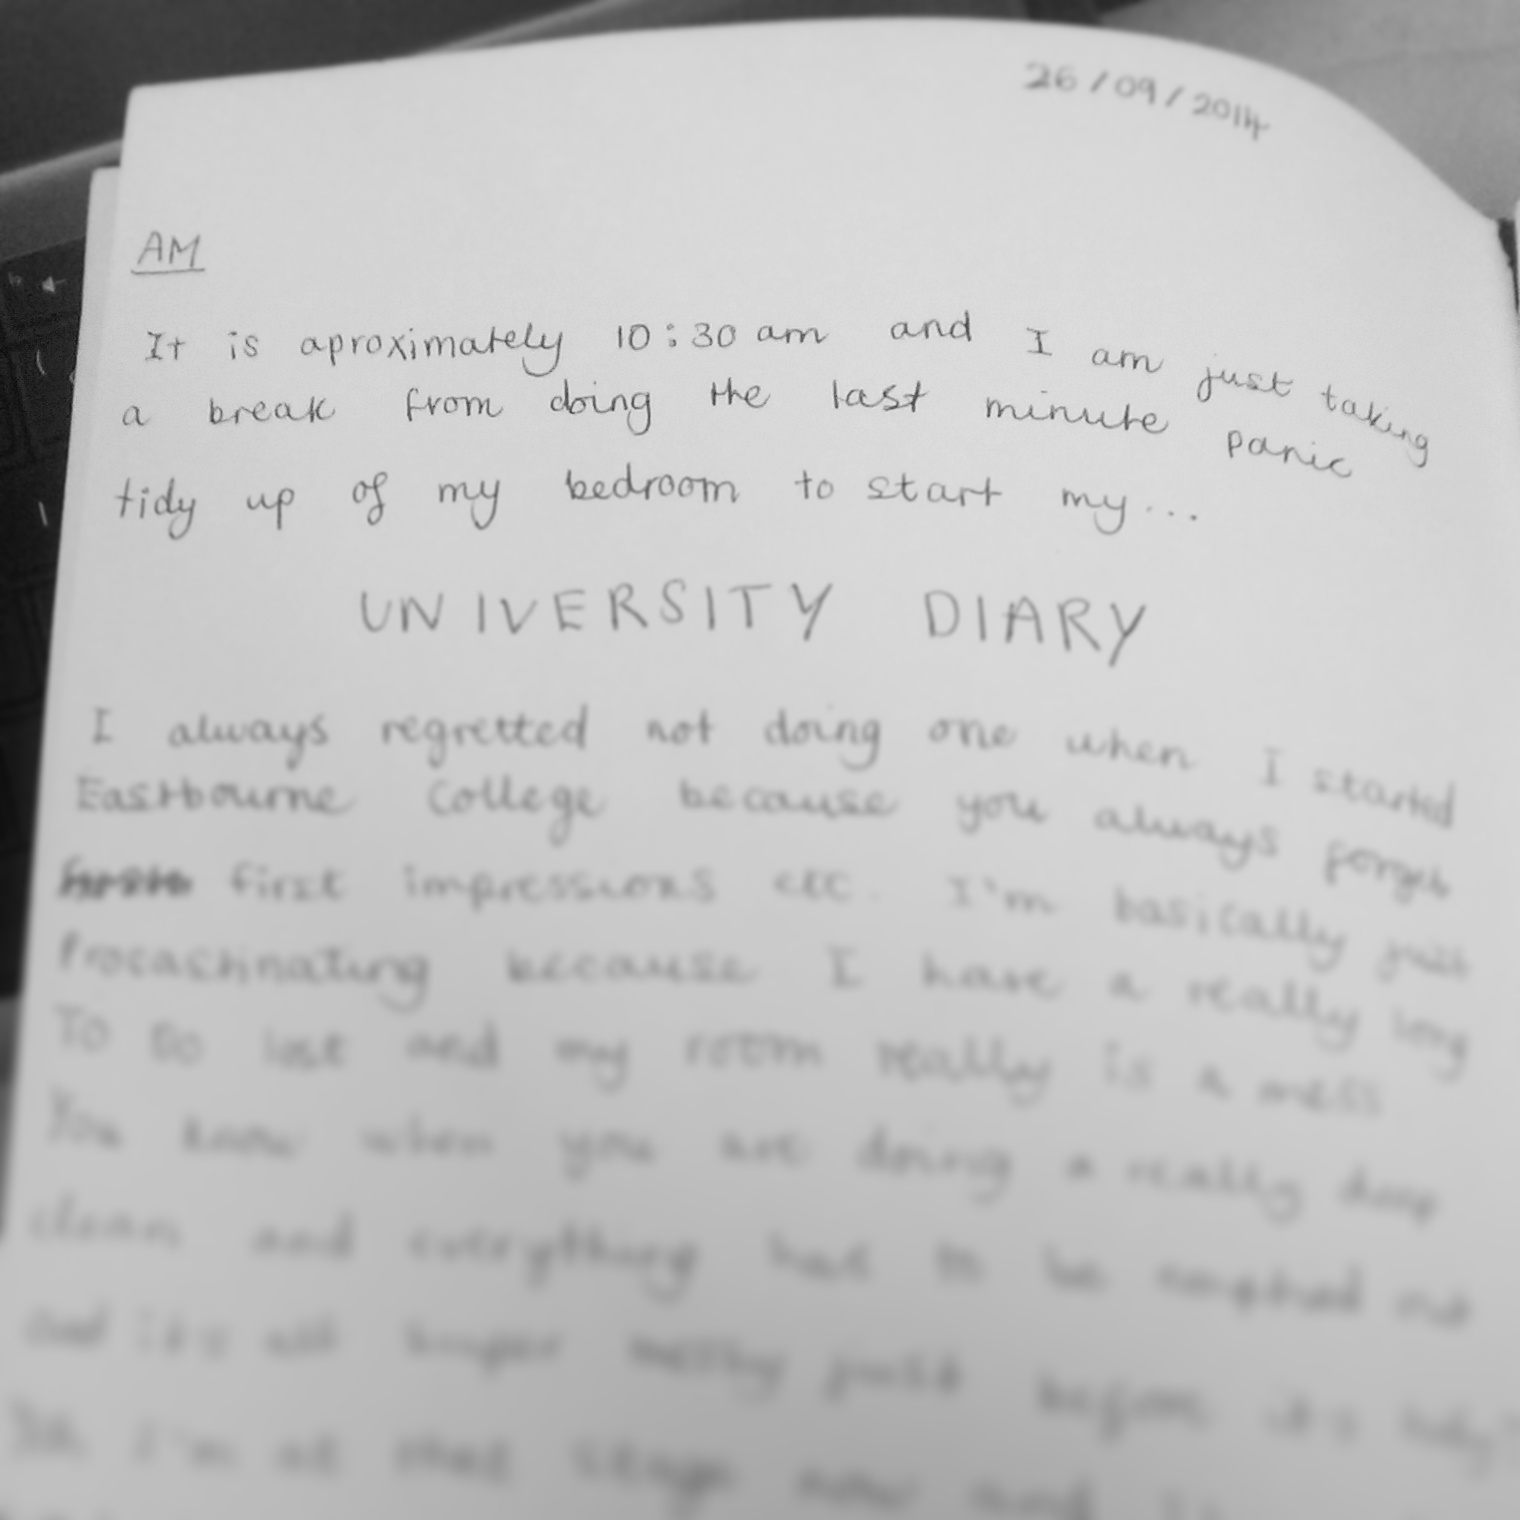 26/09/2014
AM
It is aproximately 10:30 am and I am just taking
a break from doing the last minute panic
tidy up of my bedroom to start my...
UNIVERSITY DIARY
I always regretted not doing one when I started
Eastbourne College because you always forget
first impressions etc. I'm basically just
Procastinating because I have a really long
To Do list and my room really is a mess
You know when you are doing a really deep
clean and everything has to be emptied out
and it's all super messy just before it's tidy?
I'm at that stage now and